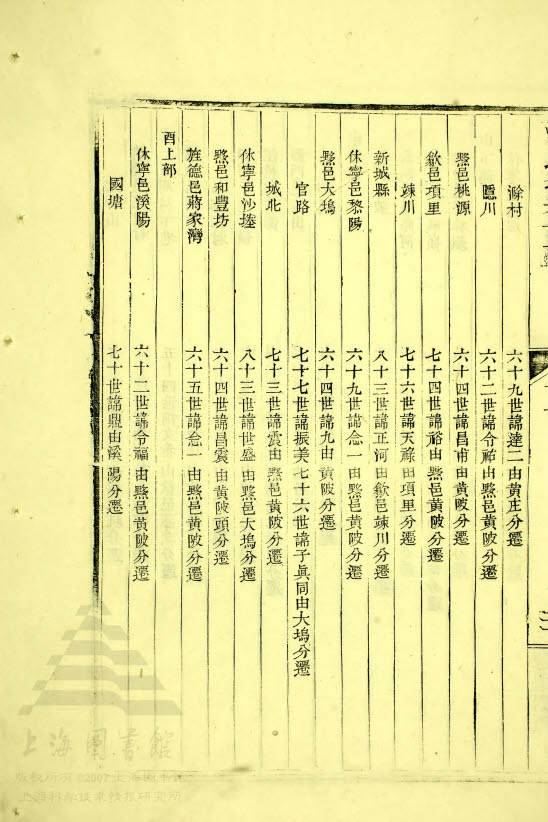 滁村 六十九世諱達二由黃庄分遷
隱川 六十二世諱令祐由黟邑黃陂分遷
黟邑桃源 六十四世諱昌甫由黃陂分遷
歙邑項里 七十四世諱裕由黟邑黃陂分遷
竦川 七十六世諱天祿由項里分遷
新城縣 八十三世諱正河由歙邑竦川分遷
休寧邑黎陽 六十九世諱念一由黟邑黃陂分遷
黟邑大塢 六十四世諱九由黃陂分遷
官路 七十七世諱振美七十六世諱子眞同由大塢分遷
城北 七十三世諱震由黟邑黃陂分遷
休寧邑沙塝 八十三世諱世盛由黟邑大塢分遷
黟邑和豐坊 六十四世諱昌震由黃陂頭分遷
旌德邑蔣家灣 六十五世諱念一由黟邑黃陂分遷
酉上部
休寧邑溪陽 六十二世諱令福由黟邑黃陂分遷
國塘 七十世諱鼎由溪陽分遷
上海圖書館
版權所有©2007上海圖書館
上海科學技術情報研究所